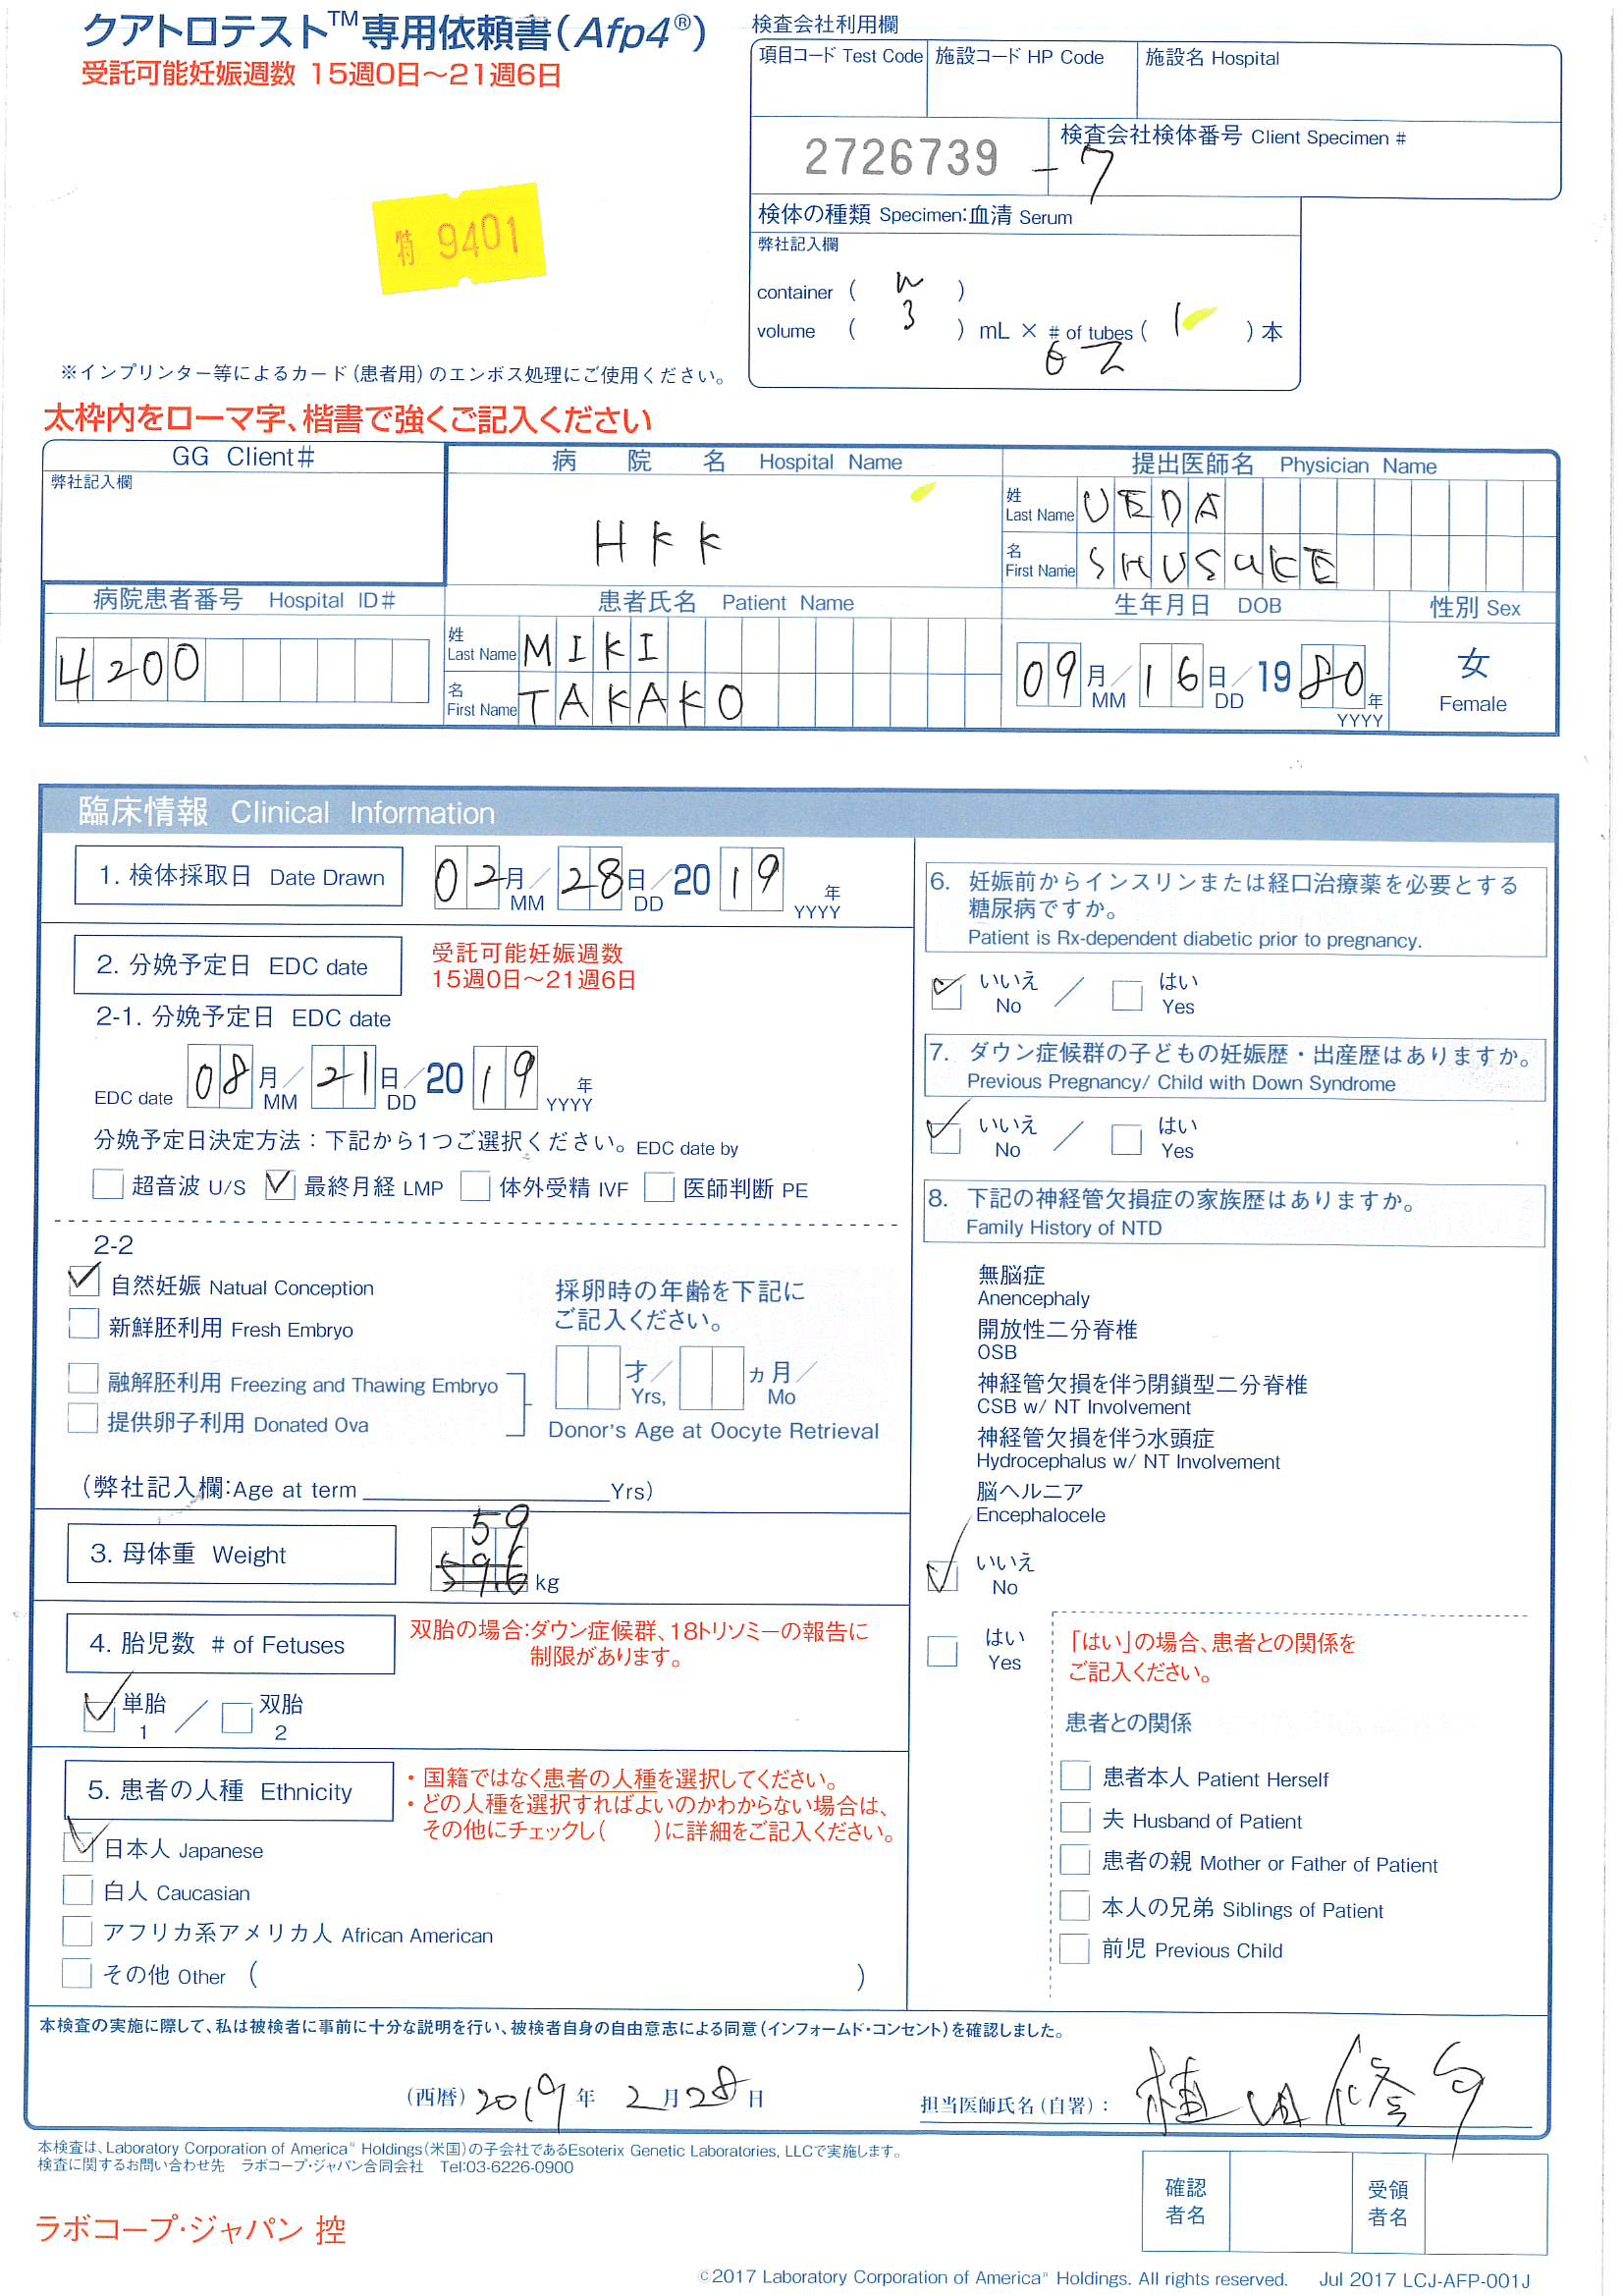 クアトロテスト™専用依頼書(Afp4®)
受託可能妊娠週数 15週0日～21週6日
検査会社利用欄
項目コード Test Code
施設コード HP Code
施設名 Hospital
2726739 -7
検査会社検体番号 Client Specimen #
検体の種類 Specimen:血清 Serum
弊社記入欄
container ( )
volume ( 3 ) mL × # of tubes ( 1 ) 本
特 9401
※インプリンター等によるカード(患者用)のエンボス処理にご使用ください。
太枠内をローマ字、楷書で強くご記入ください
GG Client#
弊社記入欄
病院名 Hospital Name
HKK
提出医師名 Physician Name
姓 Last Name UEDA
名 First Name SHUSUKE
病院患者番号 Hospital ID#
4200
患者氏名 Patient Name
姓 Last Name MIKI
名 First Name TAKAKO
生年月日 DOB
09月/16日/1980年
MM DD YYYY
性別 Sex
女
Female
臨床情報 Clinical Information
1. 検体採取日 Date Drawn
02月/28日/2019年
MM DD YYYY
2. 分娩予定日 EDC date
受託可能妊娠週数
15週0日～21週6日
2-1. 分娩予定日 EDC date
EDC date 08月/21日/2019年
MM DD YYYY
分娩予定日決定方法：下記から1つご選択ください。EDC date by
超音波 U/S 最終月経 LMP 体外受精 IVF 医師判断 PE
2-2
自然妊娠 Natual Conception
新鮮胚利用 Fresh Embryo
融解胚利用 Freezing and Thawing Embryo
提供卵子利用 Donated Ova
採卵時の年齢を下記に
ご記入ください。
才/ ヵ月/
Yrs, Mo
Donor's Age at Oocyte Retrieval
(弊社記入欄:Age at term Yrs)
3. 母体重 Weight
59
59.6 kg
4. 胎児数 # of Fetuses
双胎の場合:ダウン症候群、18トリソミーの報告に
制限があります。
単胎 / 双胎
1 2
5. 患者の人種 Ethnicity
・国籍ではなく患者の人種を選択してください。
・どの人種を選択すればよいのかわからない場合は、
その他にチェックし( )に詳細をご記入ください。
日本人 Japanese
白人 Caucasian
アフリカ系アメリカ人 African American
その他 Other ( )
6. 妊娠前からインスリンまたは経口治療薬を必要とする
糖尿病ですか。
Patient is Rx-dependent diabetic prior to pregnancy.
いいえ / はい
No Yes
7. ダウン症候群の子どもの妊娠歴・出産歴はありますか。
Previous Pregnancy/ Child with Down Syndrome
いいえ / はい
No Yes
8. 下記の神経管欠損症の家族歴はありますか。
Family History of NTD
無脳症
Anencephaly
開放性二分脊椎
OSB
神経管欠損を伴う閉鎖型二分脊椎
CSB w/ NT Involvement
神経管欠損を伴う水頭症
Hydrocephalus w/ NT Involvement
脳ヘルニア
Encephalocele
いいえ
No
はい
Yes
「はい」の場合、患者との関係を
ご記入ください。
患者との関係
患者本人 Patient Herself
夫 Husband of Patient
患者の親 Mother or Father of Patient
本人の兄弟 Siblings of Patient
前児 Previous Child
本検査の実施に際して、私は被検者に事前に十分な説明を行い、被検者自身の自由意志による同意(インフォームド・コンセント)を確認しました。
(西暦) 2019年 2月28日
担当医師氏名(自署)：植田修
本検査は、Laboratory Corporation of America® Holdings(米国)の子会社であるEsoterix Genetic Laboratories, LLCで実施します。
検査に関するお問い合わせ先 ラボコープ・ジャパン合同会社 Tel:03-6226-0900
確認
者名
受領
者名
ラボコープ・ジャパン 控
©2017 Laboratory Corporation of America® Holdings. All rights reserved. Jul 2017 LCJ-AFP-001J